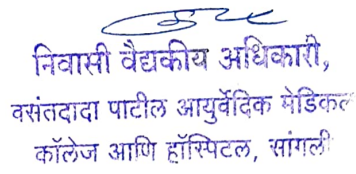 निवासी वैद्यकीय अधिकारी,
वसंतदादा पाटील आयुर्वेदिक मेडिकल
कॉलेज आणि हॉस्पिटल, सांगली